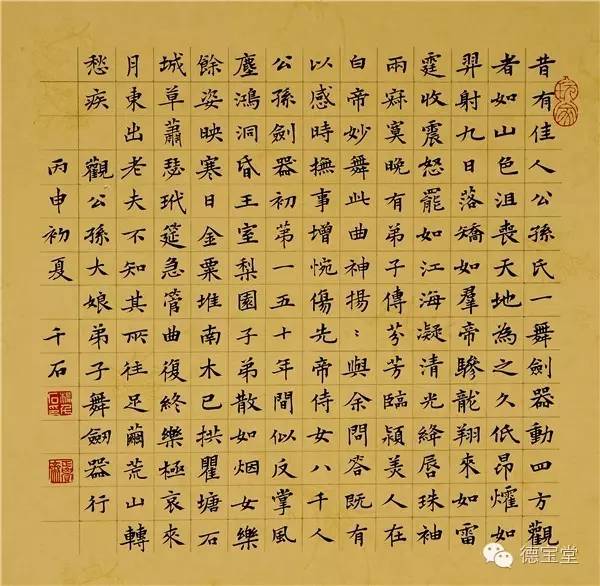 昔有佳人公孫氏一舞劍器動四方觀
者如山色沮喪天地為之久低昂燿如
羿射九日落矯如羣帝驂龍翔來如雷
霆收震怒罷如江海凝清光絳唇珠袖
兩寂寞晚有弟子傳芬芳臨潁美人在
白帝妙舞此曲神揚：與余問答既有
以感時撫事增惋傷先帝侍女八千人
公孫劍器初第一五十年間似反掌風
塵鴻洞昏王室梨園子弟散如烟女樂
餘姿映寒日金粟堆南木已拱瞿塘石
城草蕭瑟玳筵急管曲復終樂極哀來
月東出老夫不知其所往足繭荒山轉
愁疾 觀公孫大娘弟子舞劍器行
丙申初夏 千石
德宝堂